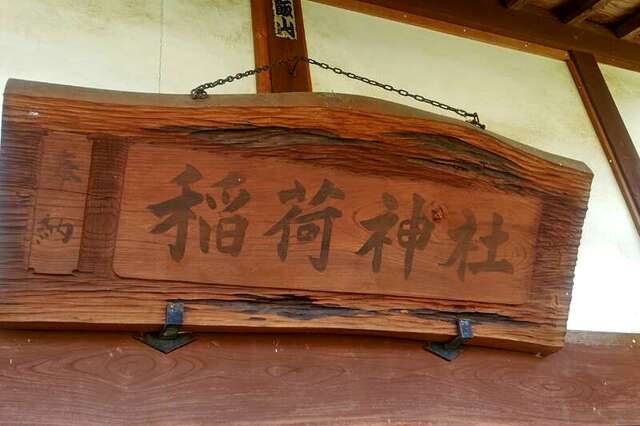 飯山
奉納
稲荷神社